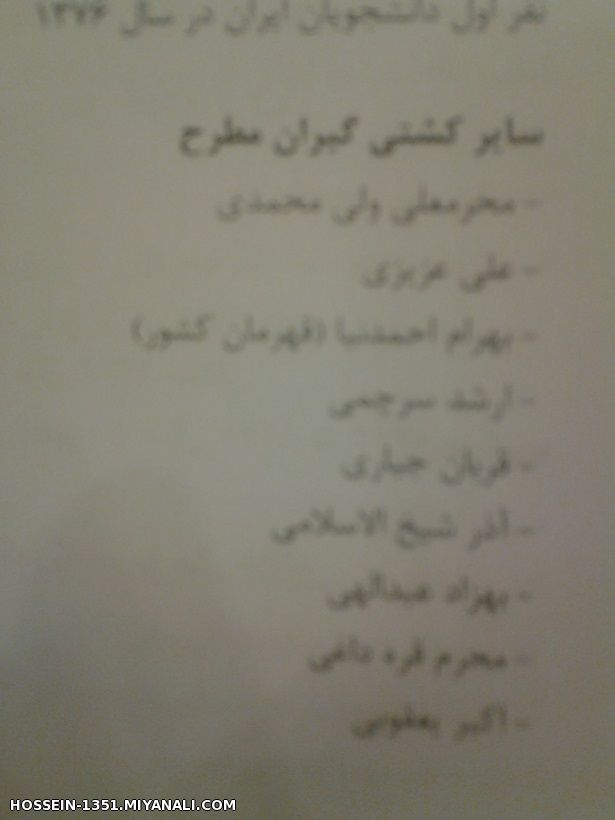 نفر اول دانشجویان ایران در سال ۱۳۷۶
سایر کشتی گیران مطرح
- محرمعلی ولی محمدی
- علی عزیزی
- بهرام احمدنیا (قهرمان کشور)
- ارشد سرچمی
- قربان جباری
- آذر شیخ الاسلامی
- بهزاد عبدالهی
- محرم قره داغی
- اکبر یعقوبی
HOSSEIN-1351.MIYANALI.COM